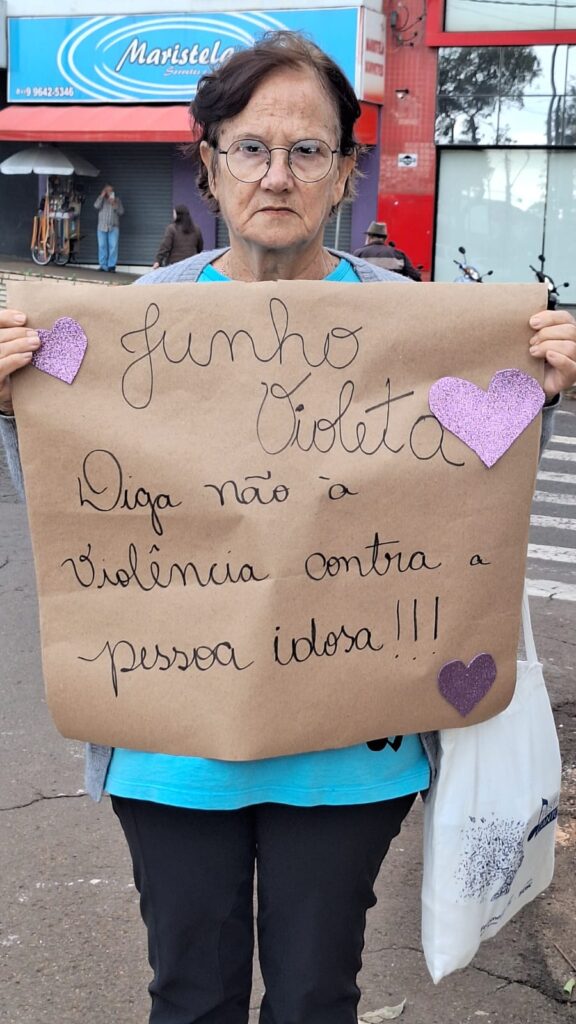 Maristela
9 9642-5346
MARISTELA
Junho
Violeta
Diga não à
violência contra a
pessoa idosa!!!